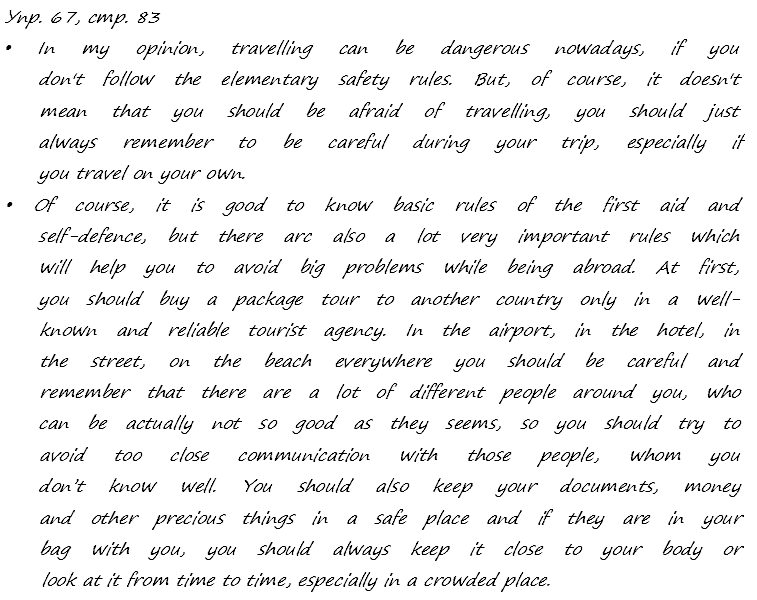 Упр. 67, стр. 83
• In my opinion, travelling can be dangerous nowadays, if you
don't follow the elementary safety rules. But, of course, it doesn't
mean that you should be afraid of travelling, you should just
always remember to be careful during your trip, especially if
you travel on your own.
• Of course, it is good to know basic rules of the first aid and
self-defence, but there arc also a lot very important rules which
will help you to avoid big problems while being abroad. At first,
you should buy a package tour to another country only in a well-
known and reliable tourist agency. In the airport, in the hotel, in
the street, on the beach everywhere you should be careful and
remember that there are a lot of different people around you, who
can be actually not so good as they seems, so you should try to
avoid too close communication with those people, whom you
don't know well. You should also keep your documents, money
and other precious things in a safe place and if they are in your
bag with you, you should always keep it close to your body or
look at it from time to time, especially in a crowded place.